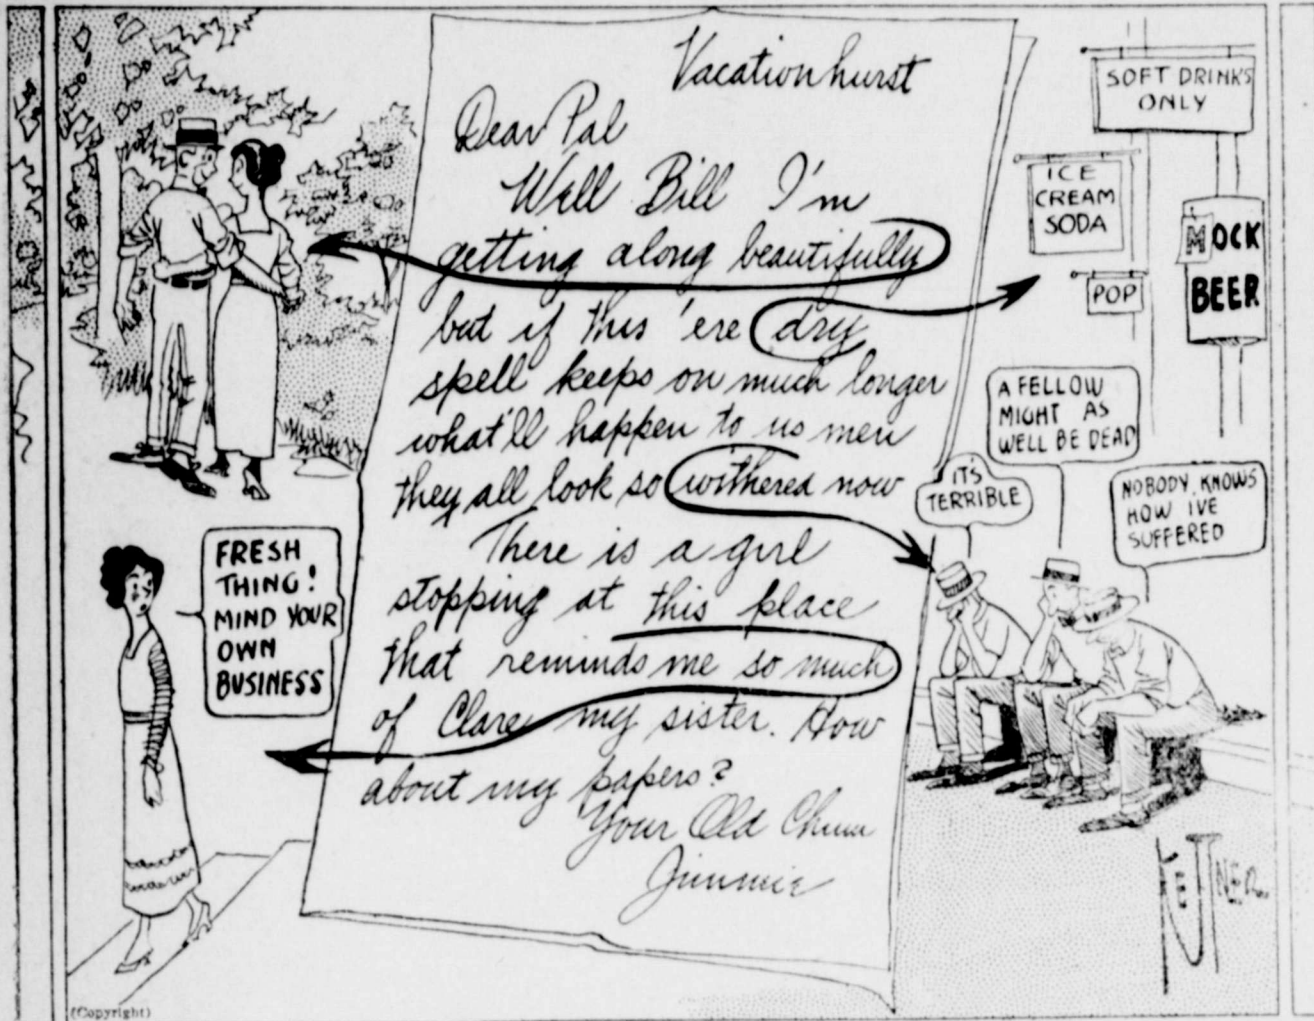 Vacationhurst
Dear Pal
Well Bill I'm
getting along beautifully
but if this 'ere dry
spell keeps on much longer
what'll happen to us men
they all look so withered now
There is a girl
stopping at this place
that reminds me so much
of Clare my sister. How
about my papers?
Your Old Chum
Jimmie
FRESH
THING!
MIND YOUR
OWN
BUSINESS
SOFT DRINKS
ONLY
ICE
CREAM
SODA
POP
MOCK
BEER
A FELLOW
MIGHT AS
WELL BE DEAD
IT'S
TERRIBLE
NOBODY KNOWS
HOW IVE
SUFFERED
KETTNER
(Copyright)